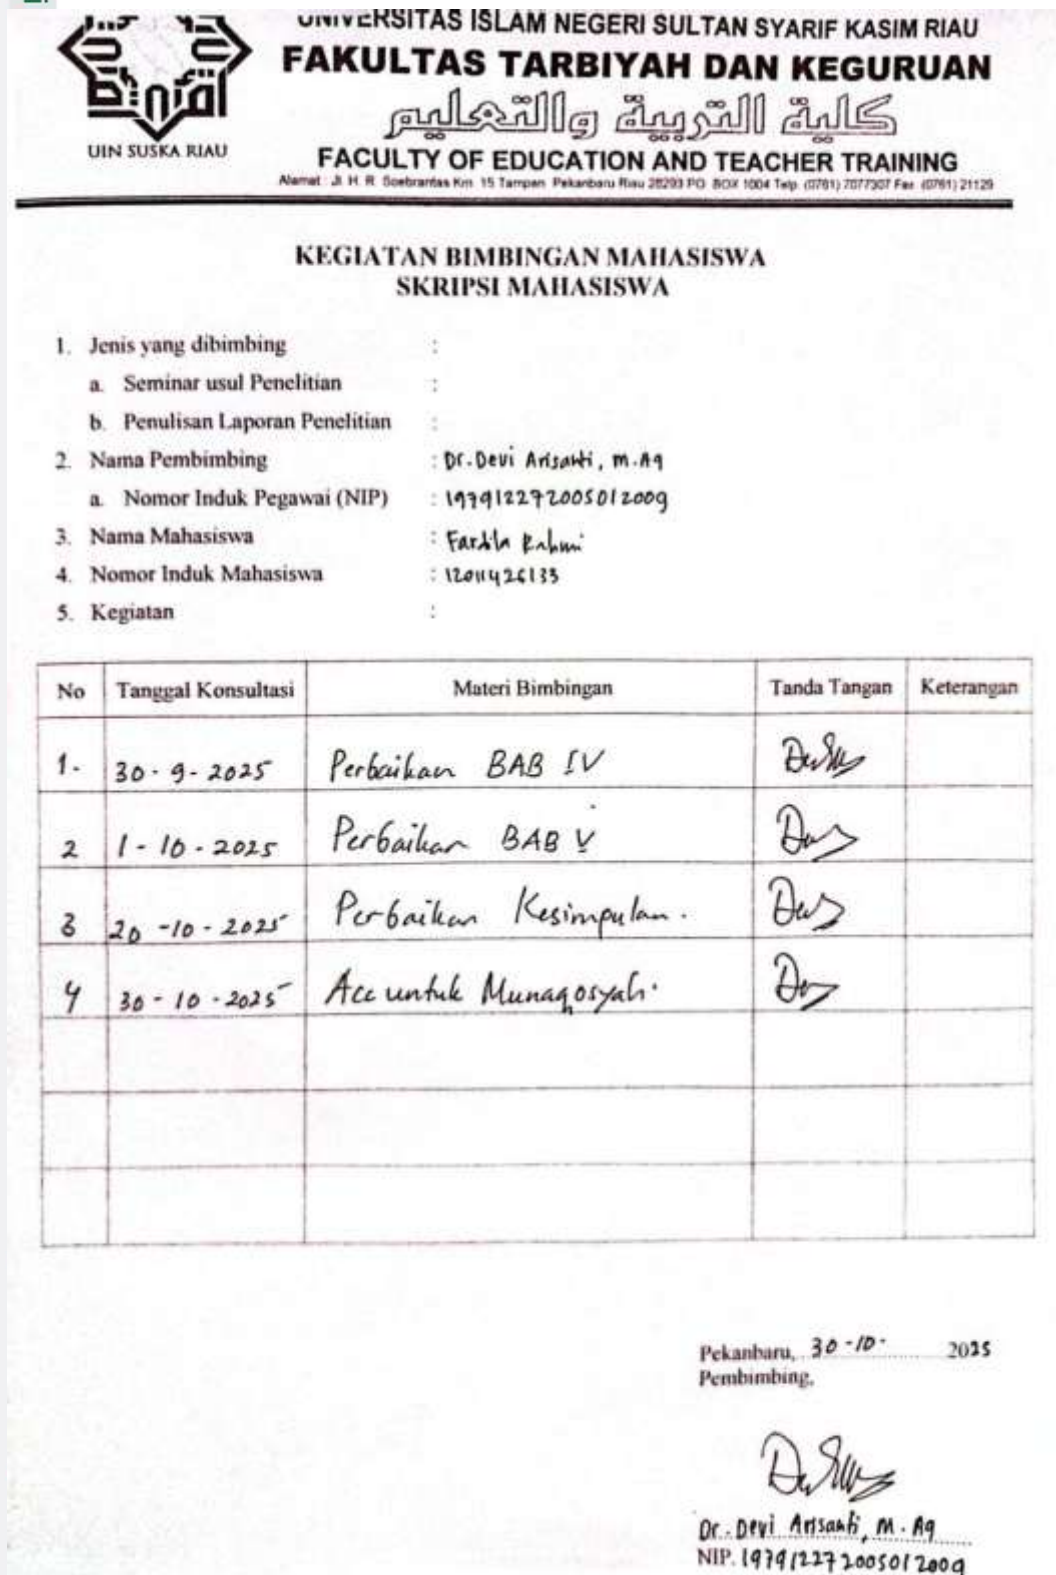 UNIVERSITAS ISLAM NEGERI SULTAN SYARIF KASIM RIAU
FAKULTAS TARBIYAH DAN KEGURUAN
كلية التربية والتعليم
FACULTY OF EDUCATION AND TEACHER TRAINING
Alamat : Jl. H. R. Soebrantas Km. 15 Tampan Pekanbaru Riau 28293 PO. BOX 1004 Telp. (0761) 7077307 Fax. (0761) 21129
UIN SUSKA RIAU
KEGIATAN BIMBINGAN MAHASISWA
SKRIPSI MAHASISWA
1. Jenis yang dibimbing :
a. Seminar usul Penelitian :
b. Penulisan Laporan Penelitian :
2. Nama Pembimbing : Dr. Devi Arisanti, M.Ag
a. Nomor Induk Pegawai (NIP) : 197912272005012009
3. Nama Mahasiswa : Fardila Rahmi
4. Nomor Induk Mahasiswa : 12011426133
5. Kegiatan :
No Tanggal Konsultasi Materi Bimbingan Tanda Tangan Keterangan
1. 30-9-2025 Perbaikan BAB IV
2 1-10-2025 Perbaikan BAB V
3 20-10-2025 Perbaikan Kesimpulan.
4 30-10-2025 Acc untuk Munaqosyah.
Pekanbaru, 30-10- 2025
Pembimbing,
Dr. Devi Arisanti, M.Ag
NIP. 197912272005012009